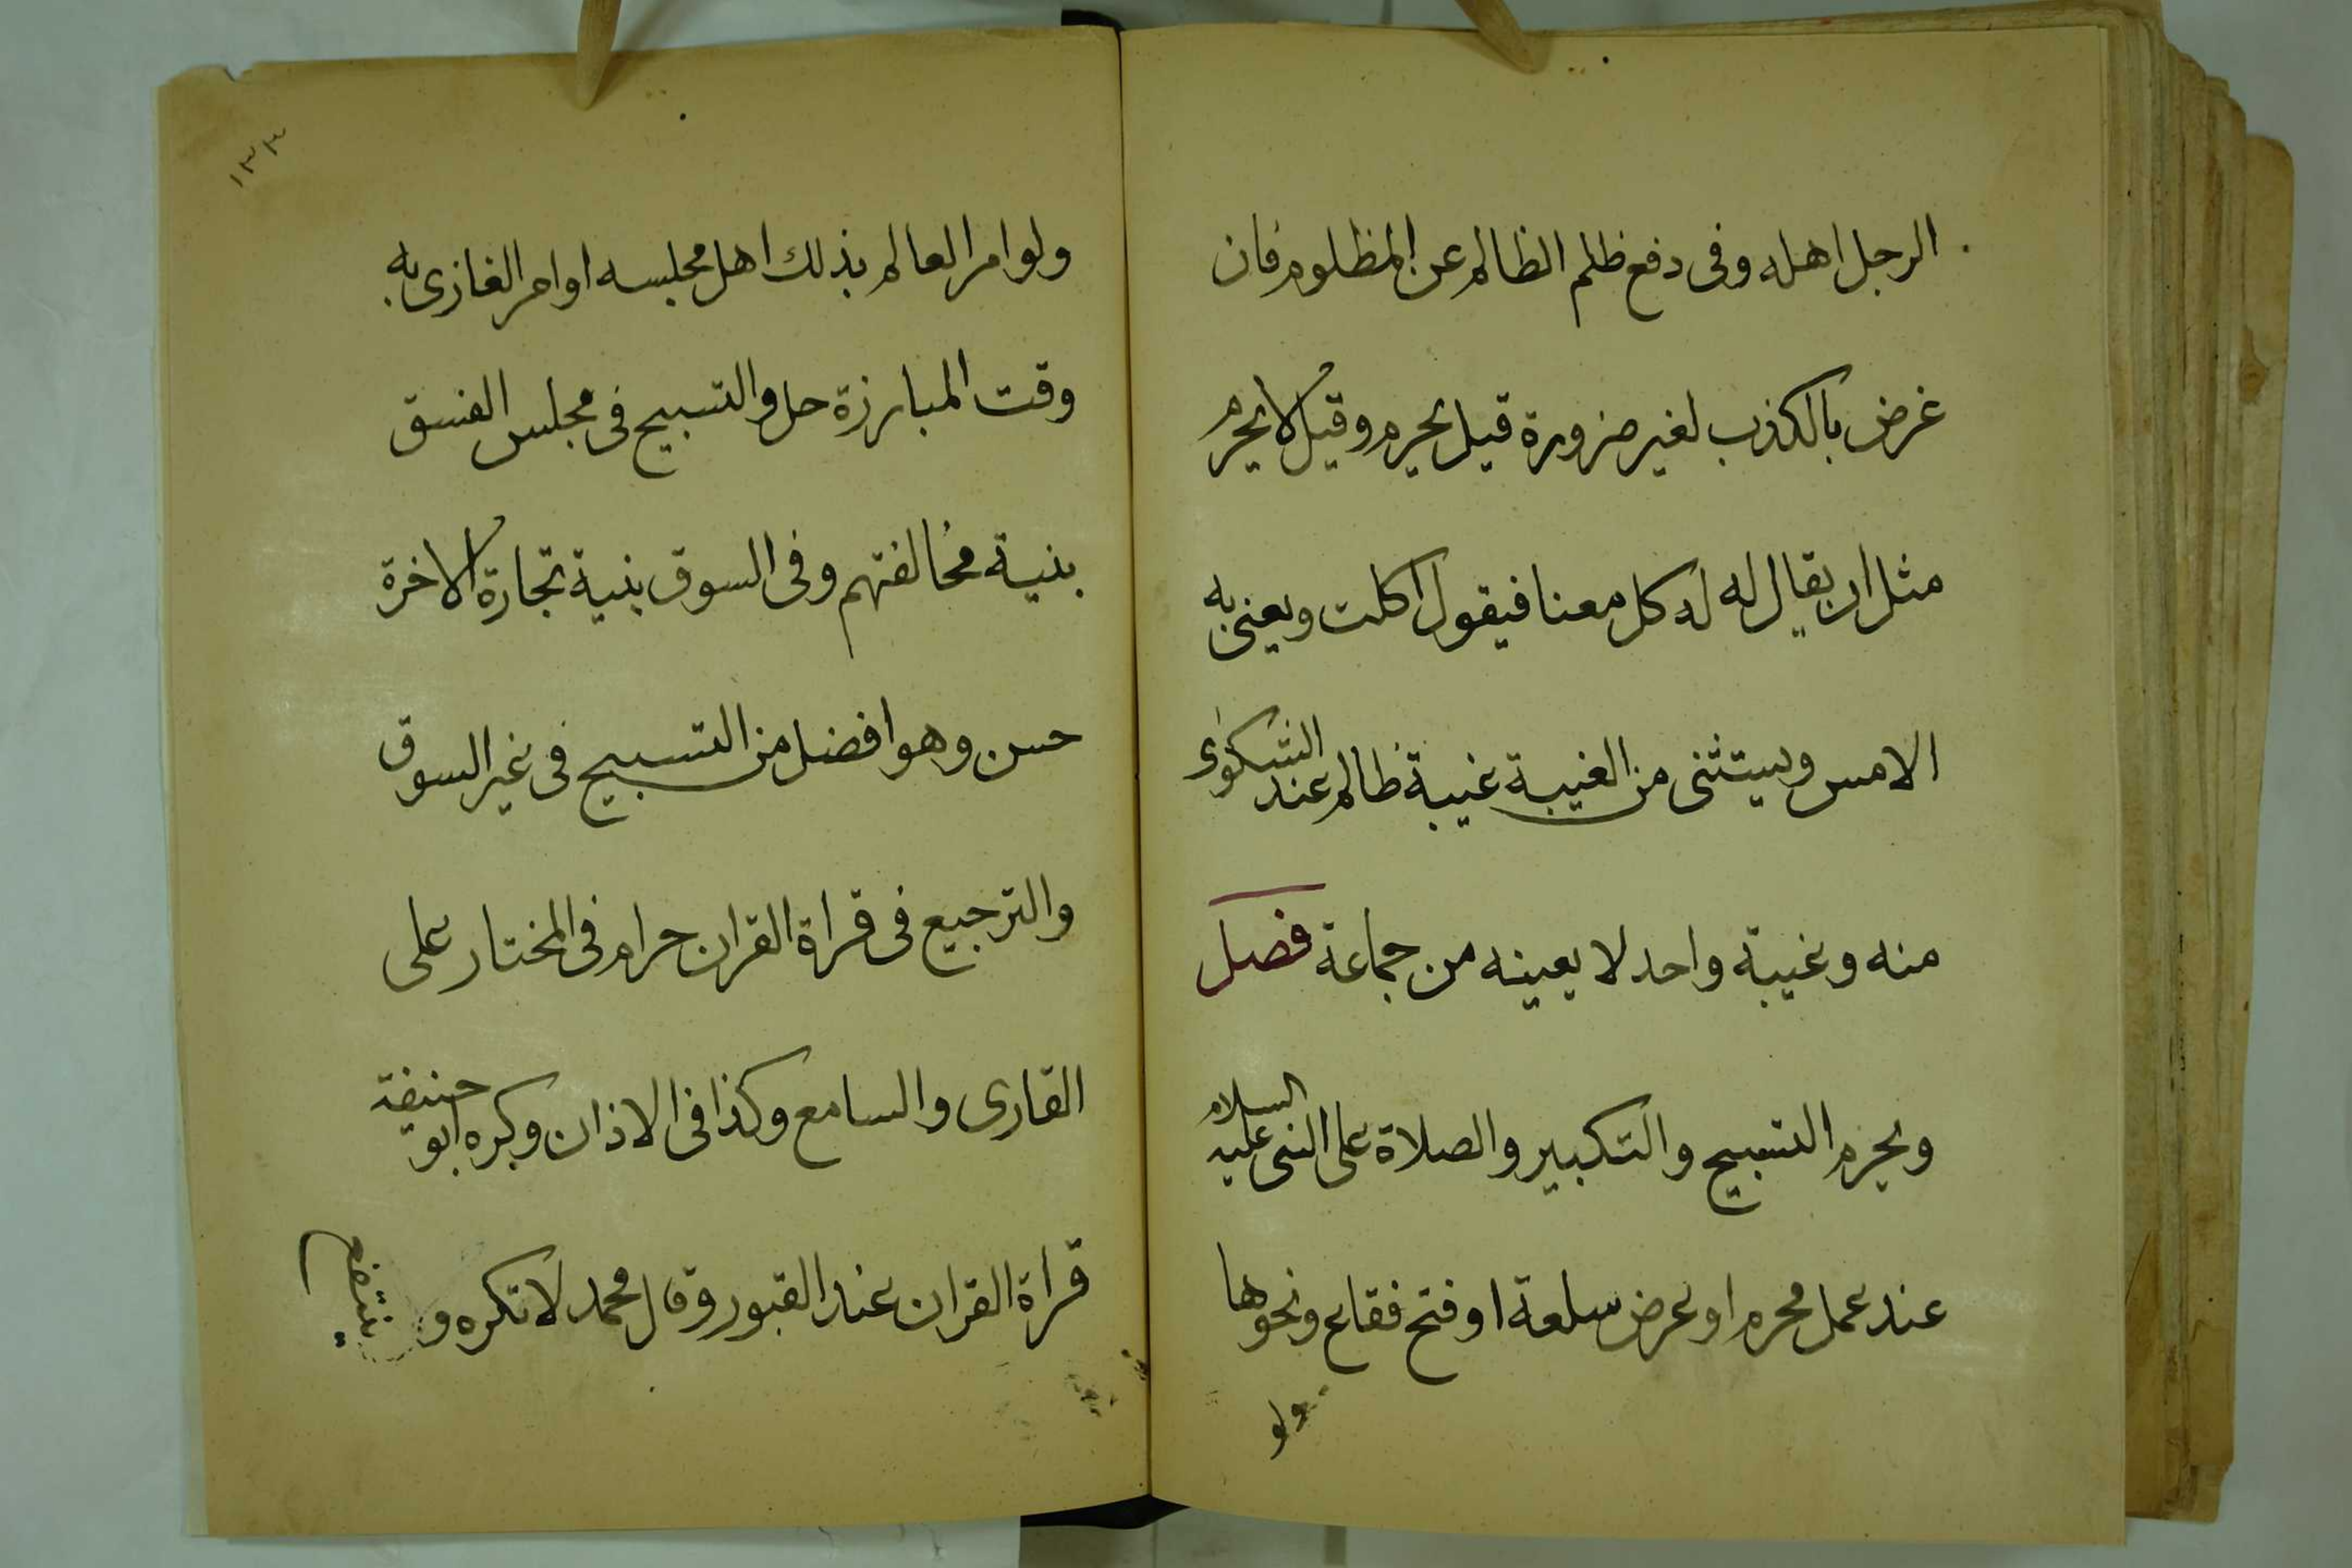 الرجل اهله وفى دفع ظلم الظالم عن المظلوم فان
غرض بالكذب لغير ضرورة قيل يحرم وقيل لا يحرم
مثل ان يقال له له كل معنا فيقول اكلت ويعنى به
الامس ويستثنى من الغيبة غيبة ظالم عند الشكوى
منه وغيبة واحد لا يعينه من جماعة فصل
ويحرم التسبيح والتكبير والصلاة على النبى عليه السلام
عند عمل محرم او عرض سلعة او فتح فقاع ونحوها
ولو
١٣٣
ولو امر العالم بذلك اهل مجلسه او امر الغازى به
وقت المبارزة حل والتسبيح فى مجلس الفسق
بنية مخالفتهم وفى السوق بنية تجارة الاخرة
حسن وهو افضل من التسبيح فى غير السوق
والترجيع فى قراة القران حرام فى المختار على
القارى والسامع وكذا فى الاذان وكره ابو حنيفة
قراة القران عند القبور وقال محمد لا تكره و